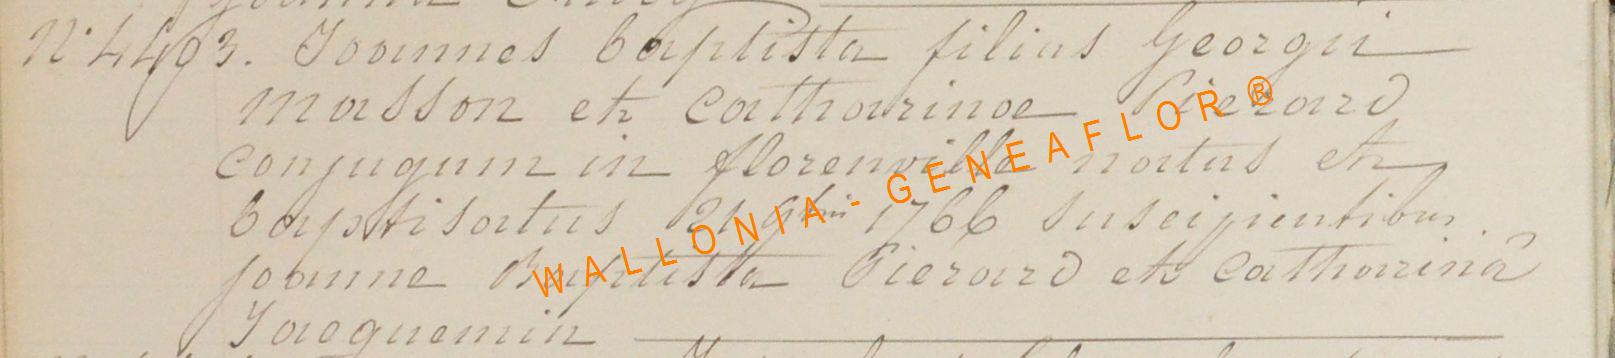 N° 4493. Joannes baptista filius Georgii
masson et catharinae Pierard
conjugum in florenville natus et
baptisatus 21 9bris 1766 suscipientibus
joanne Baptista Pierard et catharinâ
Jacquemin
WALLONIA - GENEAFLOR ®